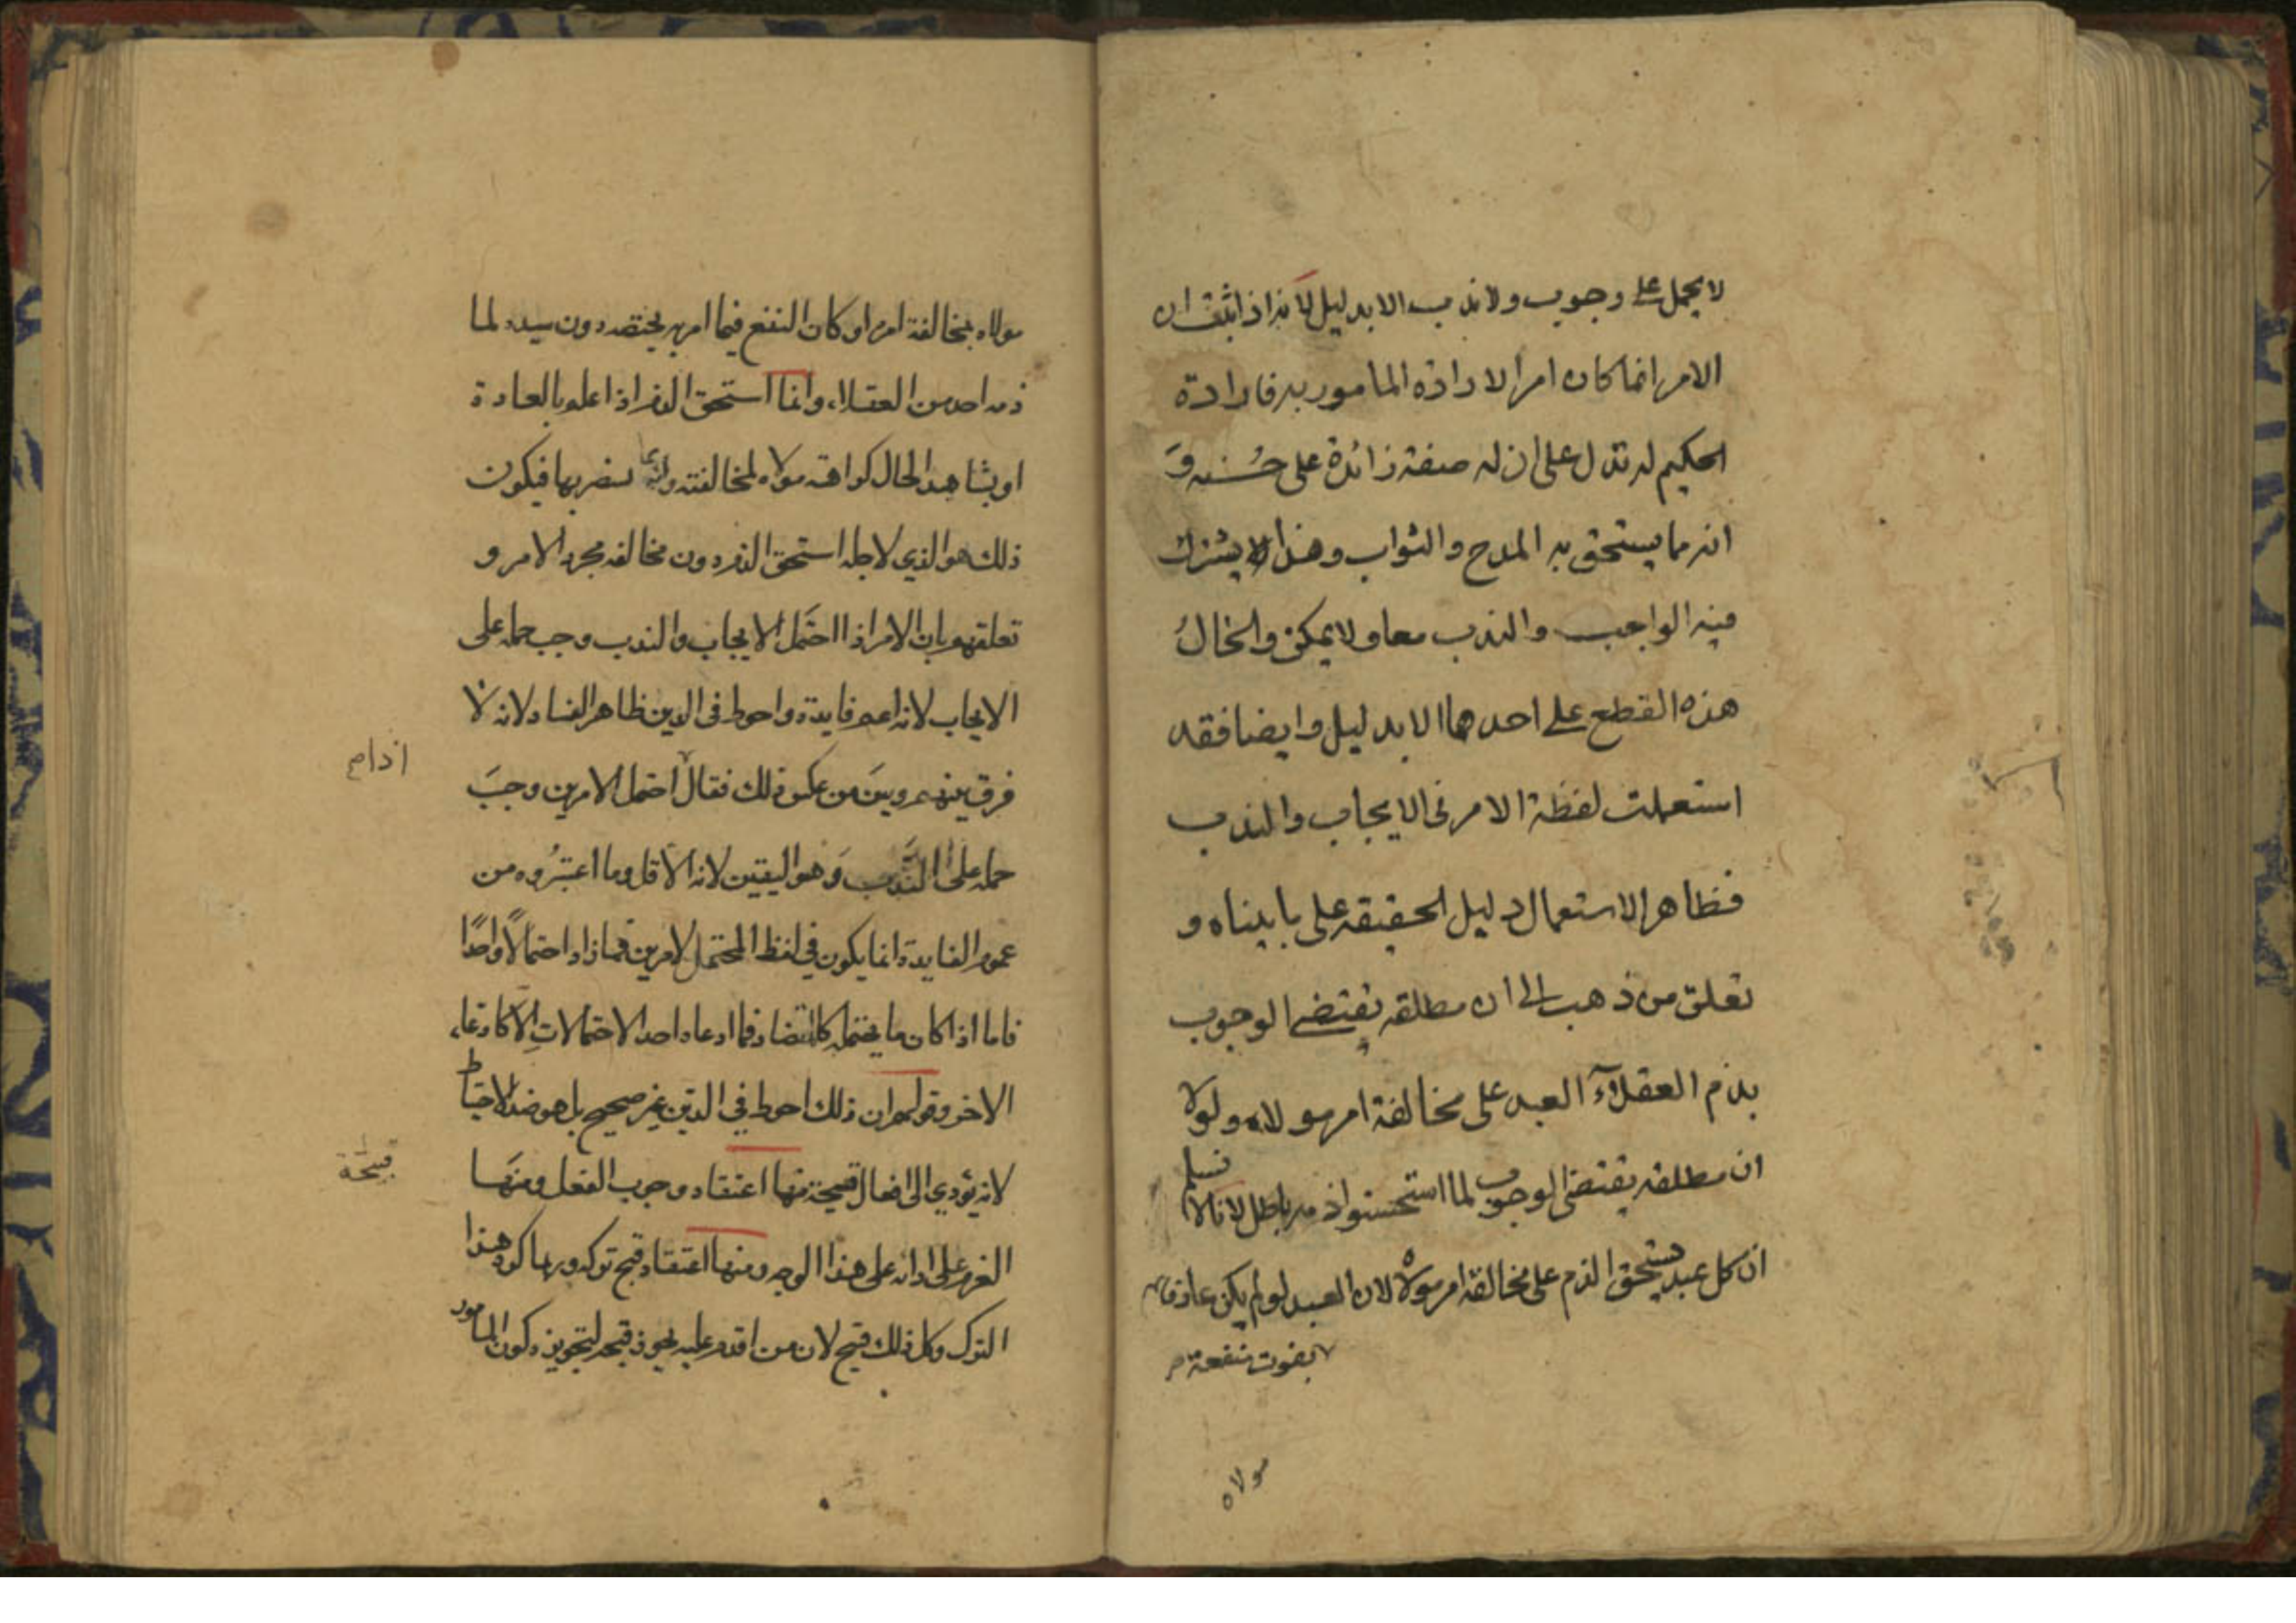 لا يحمل على وجوب ولا ندب الا بدليل لانه اذا ثبت ان
الامر انما كان امرا لارادة المامور به فارادة
الحكيم له تدل على ان له صفة زائدة على حُسنه وَ
انه مما يستحق به المدح والثواب وهذا لا يشترك
فيه الواجب والندب معا ولا يمكن والحالُ
هذه القطع على احدهما الا بدليل وايضا فقد
استعملت لفظة الامر فى الايجاب والندب
فظاهر الاستعمال دليل الحقيقه على ما بيناه و
تعلق من ذهب الى ان مطلقه يقتضى الوجوب
بذم العقلآء العبد على مخالفة امر مولاه ولولا
ان مطلقه يقتضى الوجوب لما استحسنوا ذمه باطل لانا لا نسلم
ان كل عبد يستحق الذم على مخالفة امر مولاه لان العبد لو لم يكن عارفا
بفوت منفعة
مولاه
مولاه بمخالفة امره او كان النفع فيما امر به يختصه دون سيده لما
ذمه احد من العقلاء وانما استحق الذم اذا علم بالعادة
او بشاهد الحال كراهة مولاه لمخالفته وانه يضر بها فيكون
ذلك هو الذي لاجله استحق الذم دون مخالفه مجرد الامر و
تعلقهم بان الامر اذا احتمل الايجاب والندب وجب حمله على
الايجاب لانه اعم فايدة واحوط فى الدين ظاهر الفساد لانه لا
فرق بينهم وبين من عكس ذلك فقال احتمل الامرين وجبَ
اذا
حمله على الندب وَهو اليقين لانه الاقل وما اعتبرُوه من
عموم الفايدة انما يكون في لفظ المحتمل لامرين فما زاد احتمالًا واحدًا
فاما اذا كان ما يحتمله كالمتضاد فما ادعاه احد الاحتمالاتِ الا كادعاء
الاخر وقولهم ان ذلك احوط في الدين غير صحيح بل هو ضد الاحتياط
لانه يؤدي الى افعال قبيحة منها اعتقاد وجوب الفعل ومنها
قبيحة
العزم على ادائه على هذا الوجه ومنها اعتقاد قبح تركه وربما كره هذا
الترك وكل ذلك قبيح لان من اقدم عليه يجوز قبحه لتجويزه كون المامور